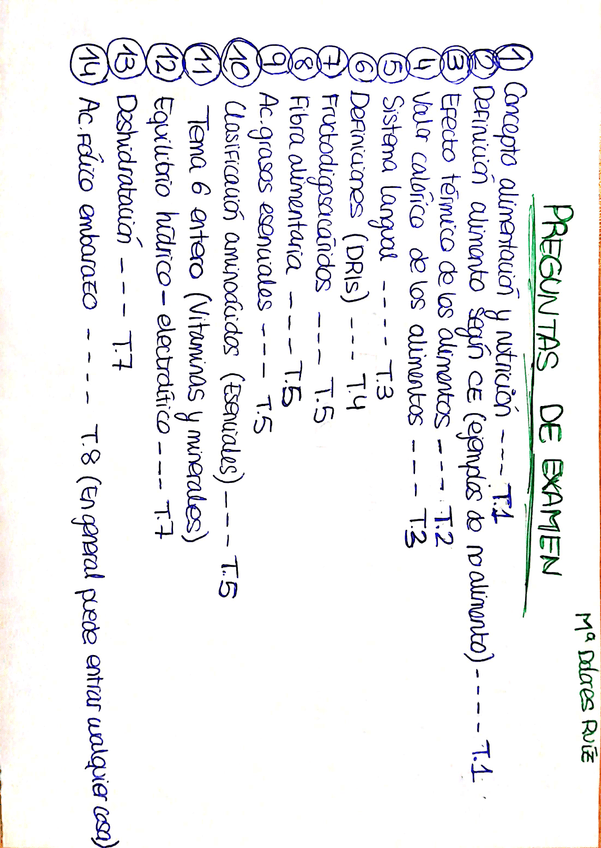 Mª Dolores Ruiz
PREGUNTAS DE EXAMEN
1 Concepto alimentación y nutrición --- T.1
2 Definición alimento según CE (ejemplos de no alimento) ---- T.1
3 Efecto térmico de los alimentos --- T.2
4 Valor calórico de los alimentos --- T.3
5 Sistema langual ---- T.3
6 Definiciones (DRIs) --- T.4
7 Fructooligosacáridos --- T.5
8 Fibra alimentaria --- T.5
9 Ac. grasos esenciales --- T.5
10 Clasificación aminoácidos (Esenciales) --- T.5
11 Tema 6 entero (Vitaminas y minerales)
12 Equilibrio hídrico-electrolítico --- T.7
13 Deshidratación --- T.7
14 Ac. Fólico embarazo ---- T.8 (En general puede entrar cualquier cosa)